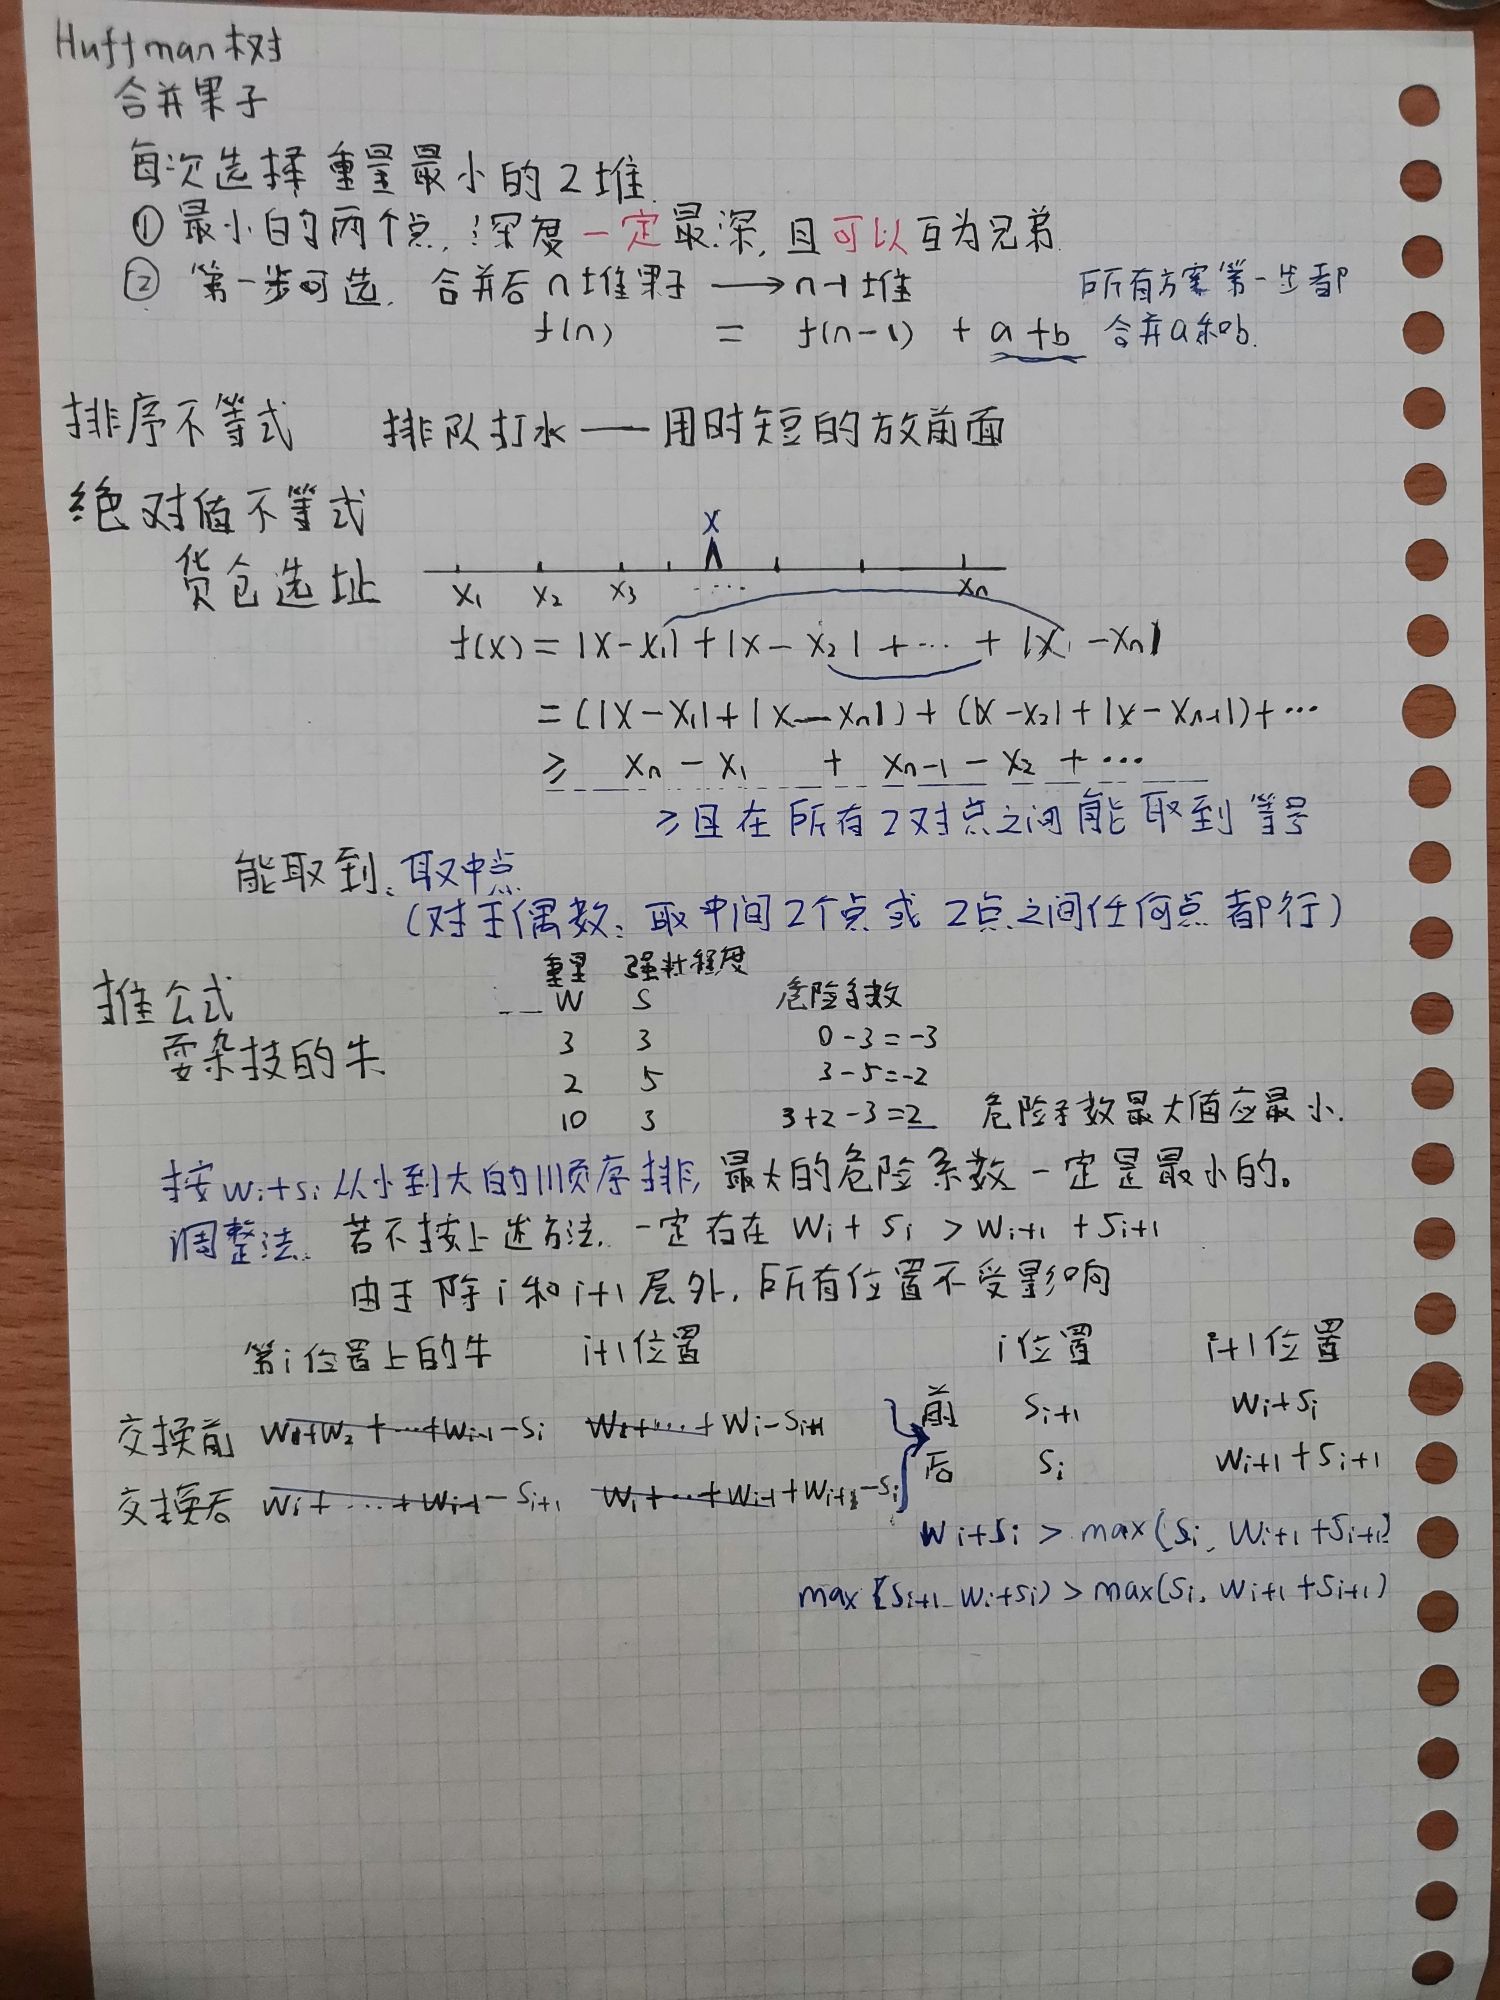 Huffman树
合并果子
每次选择重量最小的2堆.
① 最小的两个点, 深度一定最深, 且可以互为兄弟.
② 第一步可选. 合并后 n堆果子 ⟶ n-1堆 所有方案第一步都
f(n) = f(n-1) + a+b 合并a和b.
排序不等式 排队打水 — 用时短的放前面
绝对值不等式
货仓选址
x
x₁ x₂ x₃ ... xₙ
f(x) = |x-x₁| + |x-x₂| + ... + |x-xₙ|
= (|x-x₁|+|x-xₙ|) + (|x-x₂|+|x-xₙ₋₁|)+...
≥ xₙ-x₁ + xₙ₋₁-x₂ + ...
≥且在所有2对点之间能取到等号
能取到: 取中点
(对于偶数: 取中间2个点或2点之间任何点都行)
推公式
耍杂技的牛
重量 强壮程度
W S 危险系数
3 3 0-3=-3
2 5 3-5=-2
10 3 3+2-3=2 危险系数最大值应最小.
按wᵢ+sᵢ从小到大的顺序排, 最大的危险系数一定是最小的。
调整法. 若不按上述方法. 一定存在 wᵢ+sᵢ > wᵢ₊₁+sᵢ₊₁
由于除i和i+1层外, 所有位置不受影响
第i位置上的牛 i+1位置 i位置 i+1位置
交换前 w₁+w₂+...+wᵢ₋₁-sᵢ w₁+...+wᵢ-sᵢ₊₁ 前 sᵢ₊₁ wᵢ+sᵢ
交换后 w₁+...+wᵢ₋₁-sᵢ₊₁ w₁+...+wᵢ₋₁+wᵢ₊₁-sᵢ 后 sᵢ wᵢ₊₁+sᵢ₊₁
wᵢ+sᵢ > max(sᵢ, wᵢ₊₁+sᵢ₊₁)
max(sᵢ₊₁, wᵢ+sᵢ) > max(sᵢ, wᵢ₊₁+sᵢ₊₁)